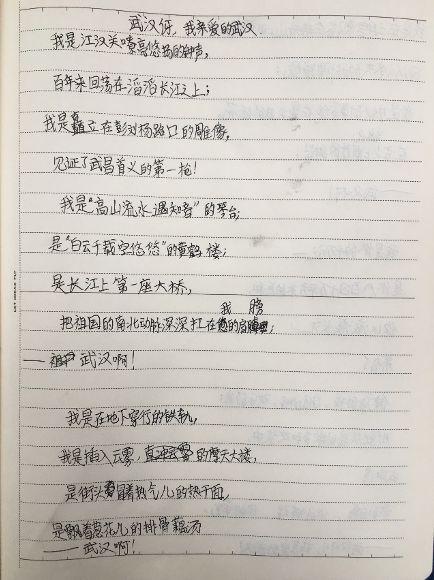 武汉伢,我亲爱的武汉
我是江汉关嘹亮悠扬的钟声,
百年来回荡在滔滔长江之上;
我是矗立在彭刘杨路口的雕像,
见证了武昌首义的第一枪!
我是“高山流水遇知音”的琴台;
是“白云千载空悠悠”的黄鹤楼;
是长江上第一座大桥,
我 膀
把祖国的南北动脉深深扛在的肩;
——武汉啊!
我是在地下穿行的铁轨,
我是插入云雾的摩天大楼,
是街头冒着热气儿的热干面,
是飘着葱花儿的排骨藕汤
——武汉啊!